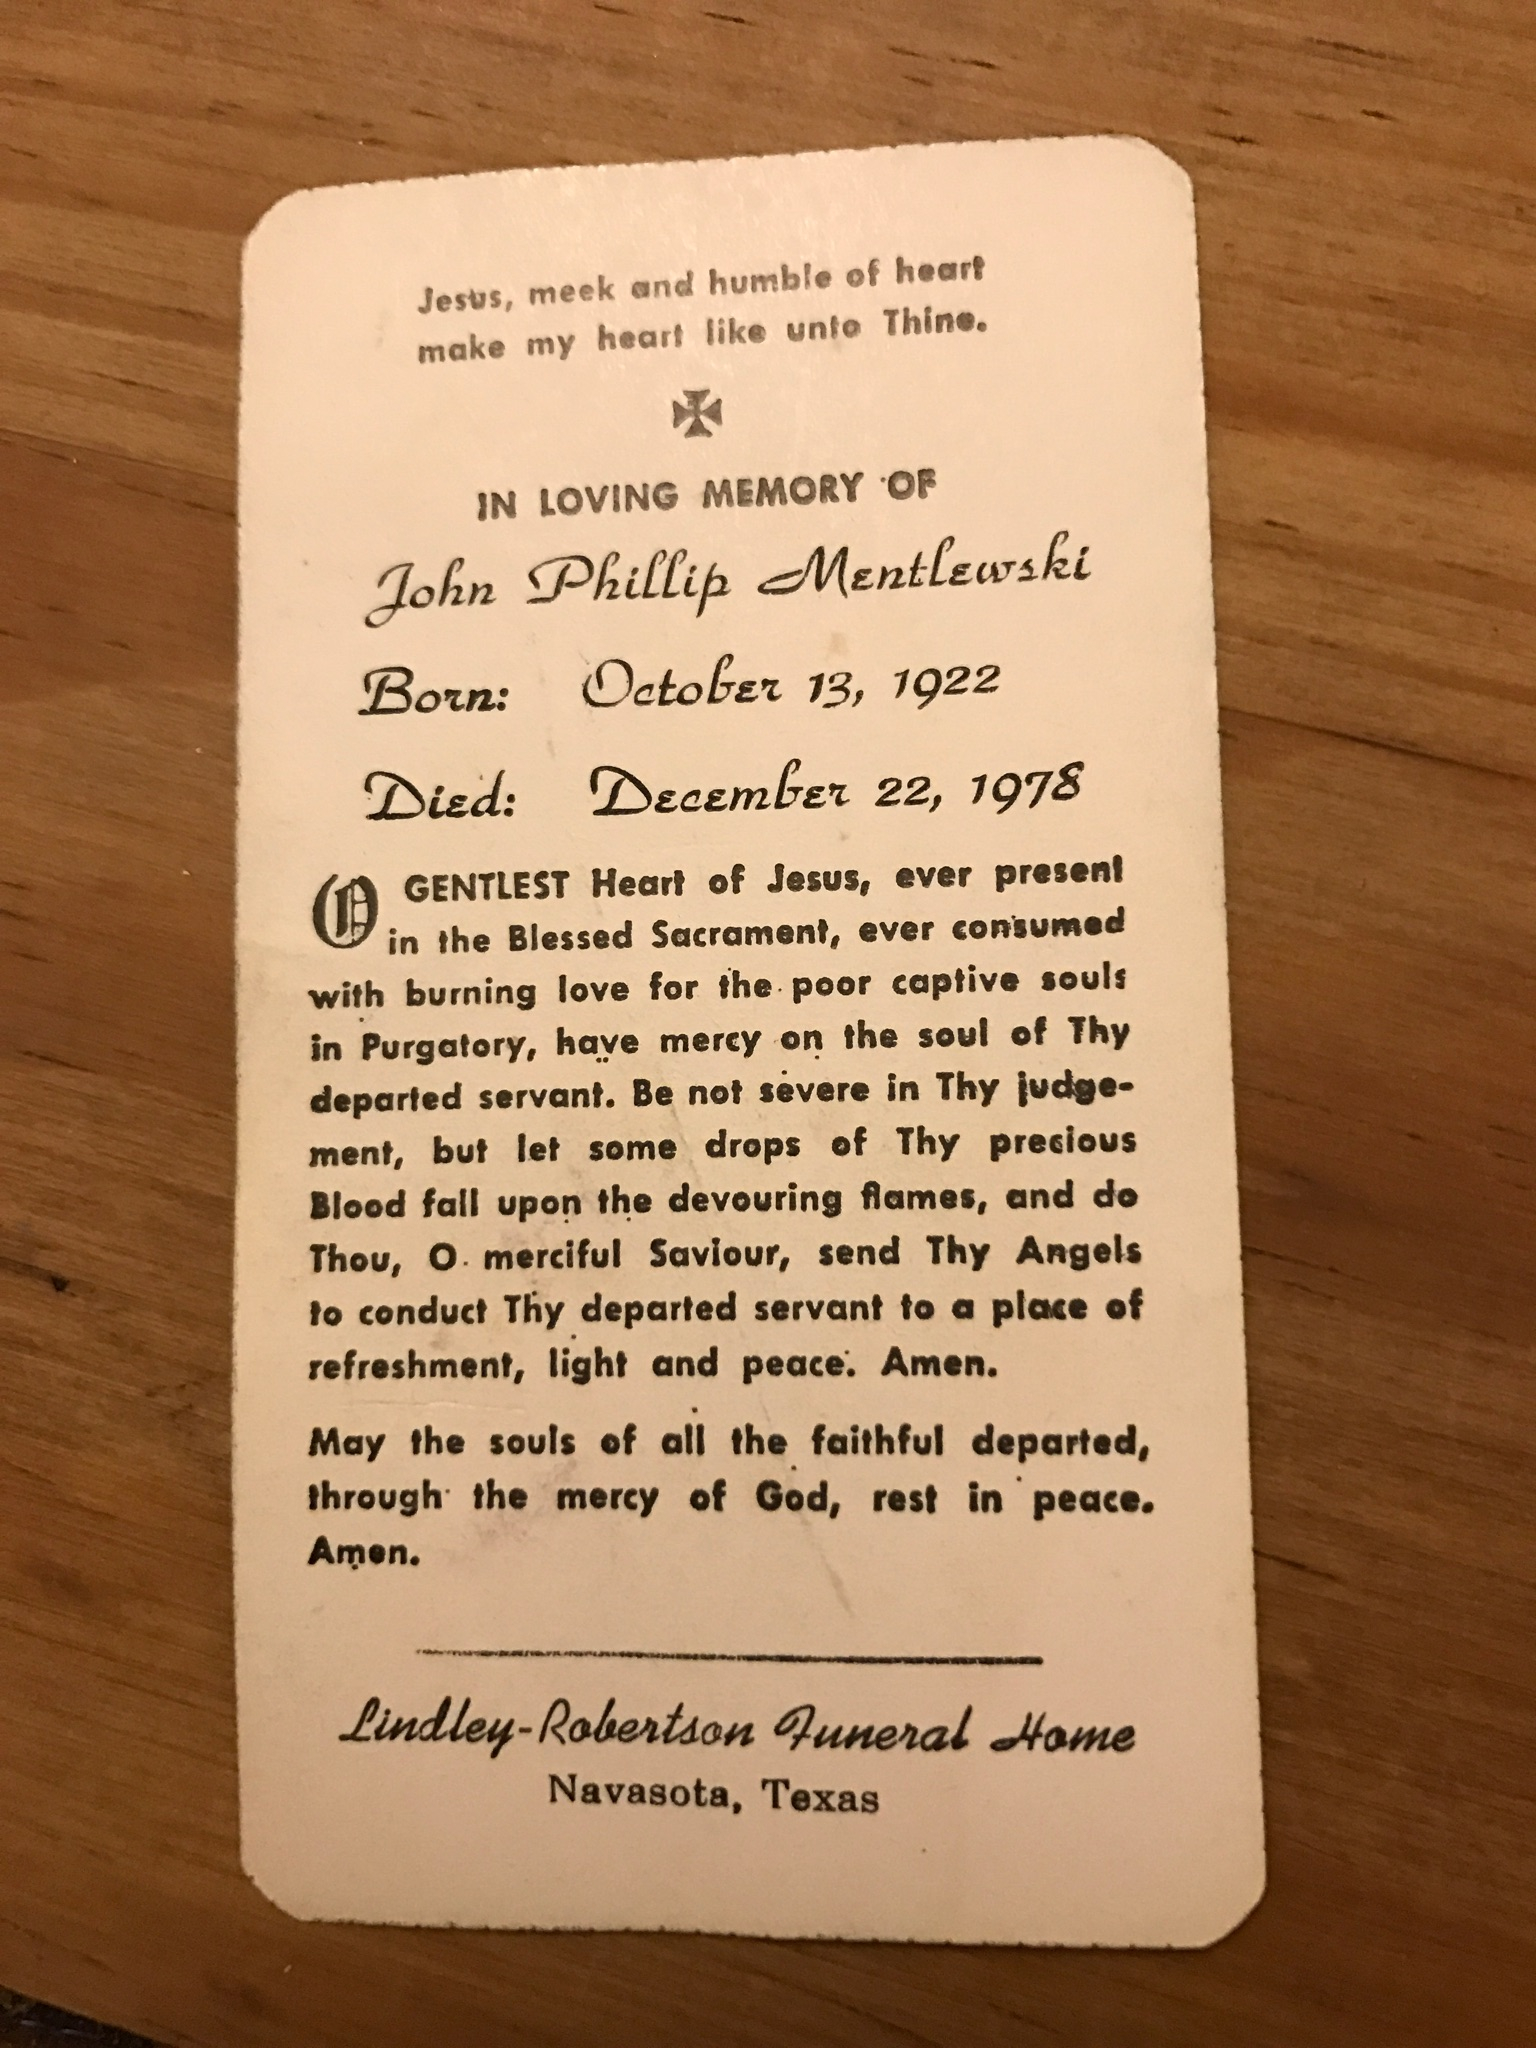 Jesus, meek and humble of heart
make my heart like unto Thine.
IN LOVING MEMORY OF
John Phillip Mentlewski
Born: October 13, 1922
Died: December 22, 1978
O GENTLEST Heart of Jesus, ever present
in the Blessed Sacrament, ever consumed
with burning love for the poor captive souls
in Purgatory, have mercy on the soul of Thy
departed servant. Be not severe in Thy judge-
ment, but let some drops of Thy precious
Blood fall upon the devouring flames, and do
Thou, O merciful Saviour, send Thy Angels
to conduct Thy departed servant to a place of
refreshment, light and peace. Amen.
May the souls of all the faithful departed,
through the mercy of God, rest in peace.
Amen.
Lindley-Robertson Funeral Home
Navasota, Texas